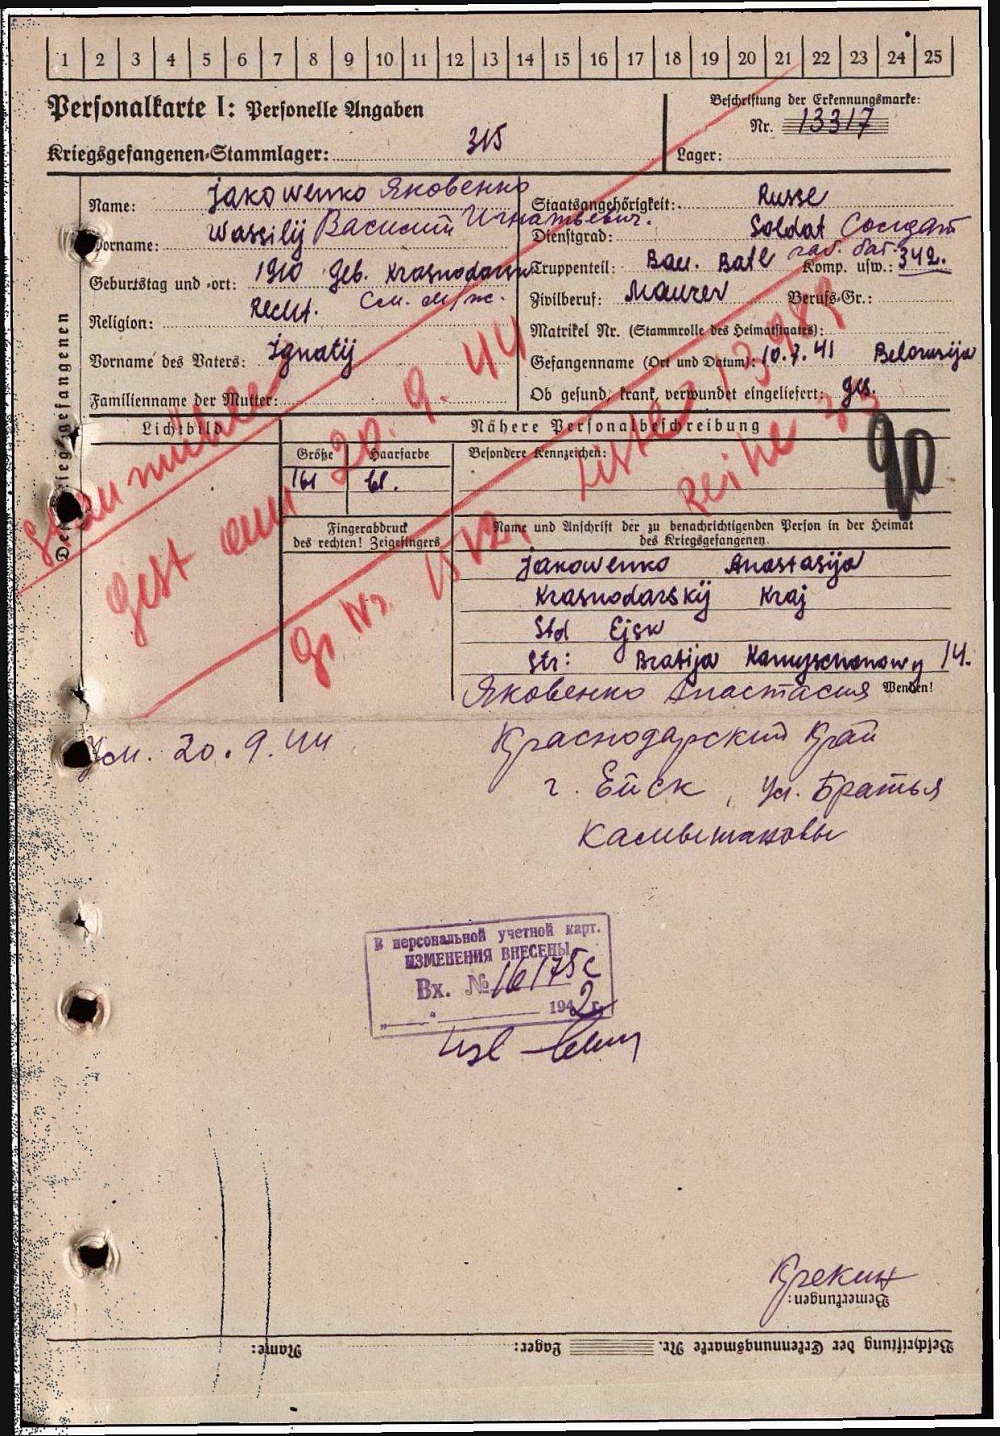 1 2 3 4 5 6 7 8 9 10 11 12 13 14 15 16 17 18 19 20 21 22 23 24 25
Personalkarte I: Personelle Angaben
Kriegsgefangenen-Stammlager: 315
Beschriftung der Erkennungsmarke:
Nr. 13317
Lager:
Des Kriegsgefangenen
Name: Jakowenko Яковенко
Vorname: Wassilij Василий Игнатьевич.
Geburtstag und -ort: 1910 geb. Krasnodarsk
Religion: Recht. См. м/ж.
Vorname des Vaters: Ignatij
Familienname der Mutter:
Staatsangehörigkeit: Russe
Dienstgrad: Soldat Солдат
Truppenteil: Bau. Batl раб. бат. Komp. usw.: 342.
Zivilberuf: Maurer Berufs-Gr.:
Matrikel Nr. (Stammrolle des Heimatstaates):
Gefangennahme (Ort und Datum): 10.7.41 Belorusija
Ob gesund, krank, verwundet eingeliefert: ges.
Lichtbild
Nähere Personalbeschreibung
Größe Haarfarbe Besondere Kennzeichen:
161 bl.
90
Fingerabdruck
des rechten! Zeigefingers
Name und Anschrift der zu benachrichtigenden Person in der Heimat
des Kriegsgefangenen
Jakowenko Anastasija
Krasnodarskij Kraj
Std Ejsk
Str: Bratija Kamyschanowy 14.
Wenden!
gest am 20.9.44
Gr Nr. Liste
Reihe
Яковенко Анастасия
Краснодарский Край
г. Ейск, ул. Братья
Камышановы
Ум. 20.9.44
В персональной учетной карт.
ИЗМЕНЕНИЯ ВНЕСЕНЫ
Вх. № 16175с
„ “ 1942 г.
Крекин
Bemerkungen:
Beschriftung der Erkennungsmarke Nr. Lager: Name: